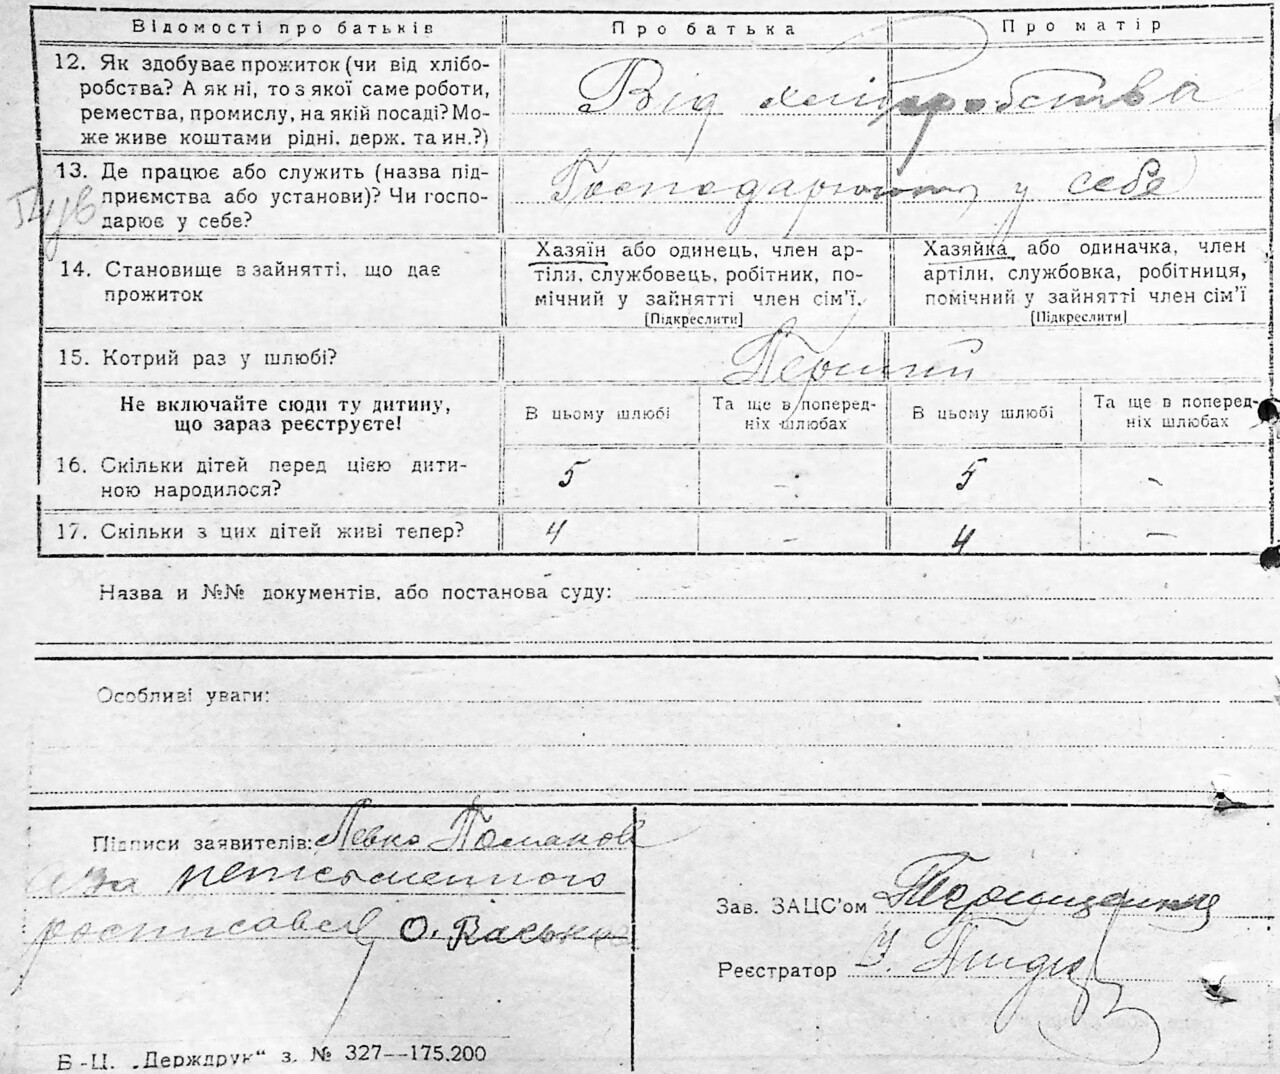 Відомості про батьків Про батька Про матір
12. Як здобуває прожиток (чи від хлібо-
робства? А як ні, то з якої саме роботи,
ремества, промислу, на якій посаді? Мо-
же живе коштами рідні, держ. та ин.?)
Від хліборобства
13. Де працює або служить (назва під-
приємства або установи)? Чи госпо-
дарює у себе?
Господарюють у себе
14. Становище в зайнятті, що дає
прожиток
Хазяїн або одинець, член ар-
тіли, службовець, робітник, по-
мічний у зайнятті член сім'ї.
[Підкреслити]
Хазяйка або одиначка, член
артіли, службовка, робітниця,
помічний у зайнятті член сім'ї
[Підкреслити]
15. Котрий раз у шлюбі? Перший
Не включайте сюди ту дитину,
що зараз реєструєте!
В цьому шлюбі
Та ще в поперед-
ніх шлюбах
В цьому шлюбі
Та ще в поперед-
ніх шлюбах
16. Скільки дітей перед цією дити-
ною народилося?
5 - 5 -
17. Скільки з цих дітей живі тепер? 4 - 4 -
Назва и №№ документів, або постанова суду:
Особливі уваги:
Підписи заявителів: Левко
а за неписьменного
росписався О.
Зав. ЗАЦС'ом
Реєстратор
Б-Ц. „Держдрук“ з. № 327--175.200